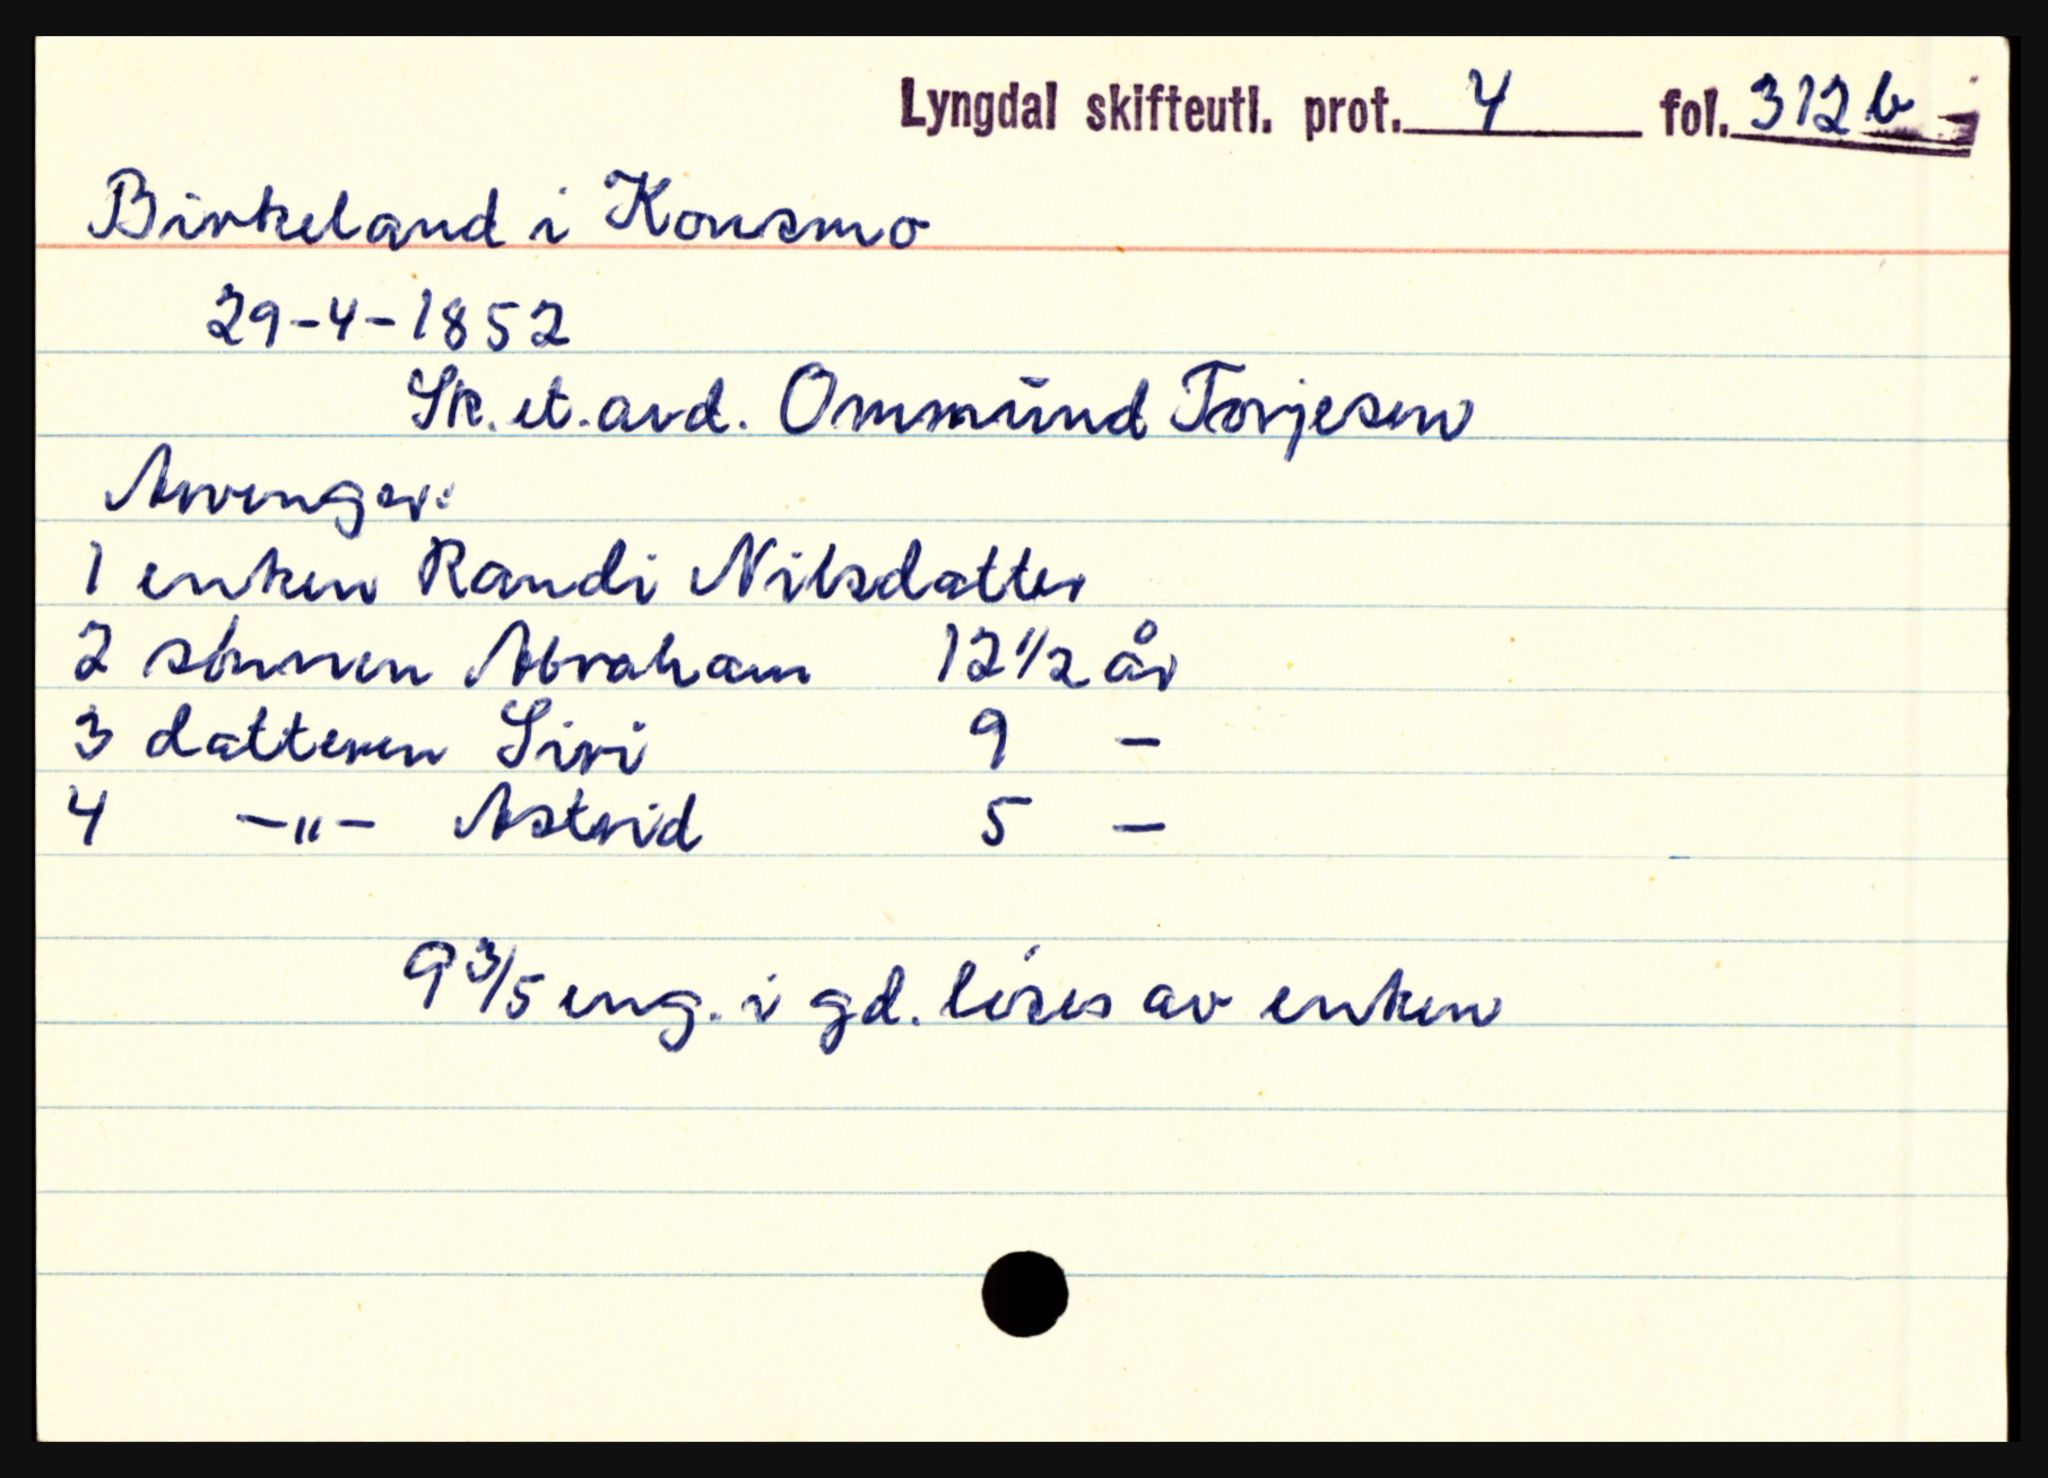 Lyngdal skifteutl. prot. 4 fol. 312b
Birkeland i Konsmo
29-4-1852
Sk. et. avd. Ommund Torjesen
Arvinger:
1 enken Randi Nilsdatter
2 sønnen Abraham 12 1/2 år
3 datteren Siri 9 -
4 -"- Astrid 5 -
9 3/5 eng. i gd. løses av enken